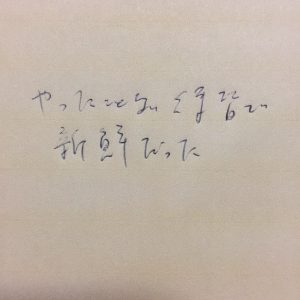 やったことない練習で
新鮮だった